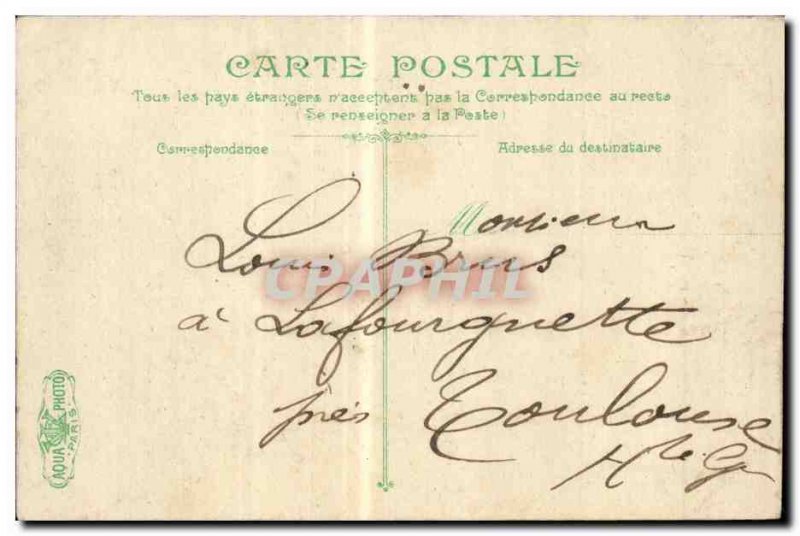 CARTE POSTALE
Tous les pays étrangers n'acceptent pas la Correspondance au recto
(Se renseigner à la Poste)
Correspondance
Adresse du destinataire
Monsieur
Louis Brus
CPAPHIL
à Lafourguette
près Toulouse
Hte G
AQUA PHOTO
PARIS